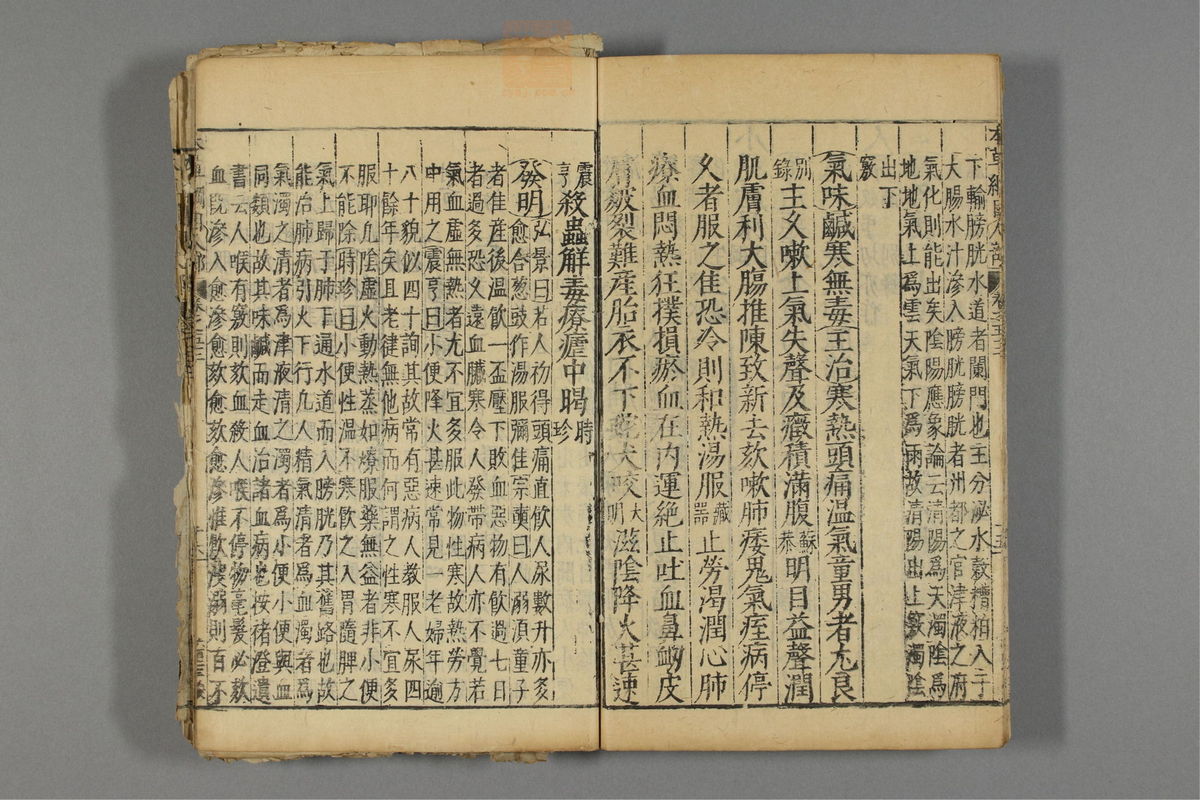 下輸膀胱水道者闌門也王分泌水穀糟粕入于
大腸水汁滲入膀胱膀胱者州都之官津液之府
氣化則能出矣陰陽應象論云清陽為天濁陰為
地地氣上為雲天氣下為雨故清陽出上竅濁陰
出下
竅
氣味鹹寒無毒主治寒熱頭痛溫氣童男者尤良
別錄主久嗽上氣失聲及癥積滿腹蘇恭明目益聲潤
肌膚利大腸推陳致新去欬嗽肺痿鬼氣痓病停
久者服之佳恐冷則和熱湯服藏器止勞渴潤心肺
療血悶熱狂撲損瘀血在內運絕止吐血鼻衄皮
膚皴裂難産胎衣不下蛇犬咬大明滋陰降火甚速
震亨殺蟲解毒療瘧中暍時珍
發明弘景曰若人初得頭痛直飲人尿數升亦多
愈合葱豉作湯服彌佳宗奭曰人溺須童子
者佳産後溫飲一盃壓下敗血惡物有飲過七日
者過多恐久遠血臟寒令人發帶病人亦不覺若
氣血虛無熱者尤不宜多服此物性寒故熱勞方
中用之震亨曰小便降火甚速常見一老婦年逾
八十貌似四十詢其故常有惡病人教服人尿四
十餘年矣且老健無他病而何謂之性寒不宜多
服耶凡陰虛火動熱蒸如燎服藥無益者非小便
不能除時珍曰小便性溫不寒飲之入胃隨脾之
氣上歸于肺下通水道而入膀胱乃其舊路也故
能治肺病引火下行凡人精氣清者為血濁者為
氣濁之清者為津液清之濁者為小便小便與血
同類也故其味鹹而走血治諸血病也按褚澄遺
書云人喉有竅則欬血殺人喉不停物毫髮必欬
血既滲入愈滲愈欬愈欬愈滲惟飲溲溺則百不